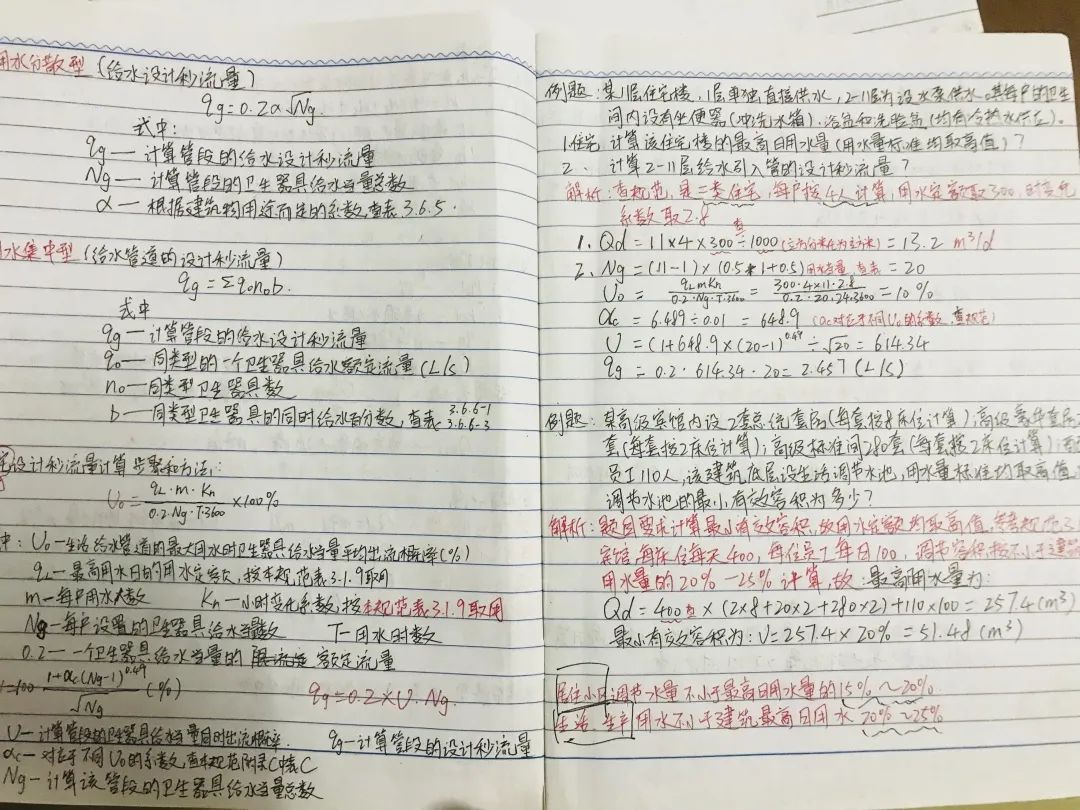 用水分散型（给水设计秒流量）
qg=0.2α√Ng.
式中:
qg — 计算管段的给水设计秒流量
Ng — 计算管段的卫生器具给水当量总数
α — 根据建筑物用途而定的系数,查表3.6.5.
水集中型（给水管道的设计秒流量）
qg=Σq0n0b.
式中
qg — 计算管段的给水设计秒流量
q0 — 同类型的一个卫生器具给水额定流量(L/s)
n0 — 同类型卫生器具数
b — 同类型卫生器具的同时给水百分数,查表 3.6.6-1 3.6.6-3
设计秒流量计算步骤和方法:
U0 = qL·m·Kh / 0.2·Ng·T·3600 ×100%
中: U0 — 生活给水管道的最大用水时卫生器具给水当量平均出流概率(%)
qL — 最高用水日的用水定额,按本规范表3.1.9取用
m — 每户用水人数 Kh — 小时变化系数,按本规范表3.1.9取用
Ng — 每户设置的卫生器具给水当量数 T — 用水时数
0.2 — 一个卫生器具给水当量的额定流量
=100 1+αc(Ng-1)^0.49 / √Ng (%) qg=0.2×U·Ng.
U — 计算管段的卫生器具给水当量同时出流概率. qg — 计算管段的设计秒流量
αc — 对应于不同U0的系数,查本规范附录C中表C
Ng — 计算该管段的卫生器具给水当量总数
例题: 某11层住宅楼, 1层单独直接供水, 2-11层为设水泵供水。其每户的卫生
间内设有坐便器(冲洗水箱)、浴盆和洗脸盆(均有冷热水供应).
1.住宅: 计算该住宅楼的最高日用水量(用水量标准均取高值)?
2. 计算2-11层给水引入管的设计秒流量?
解析: 查规范, 是二类住宅, 每户按4人计算, 用水定额取300, 时变化
系数取2.8
1. Qd=11×4×300÷1000(立方分米化为立方米)=13.2 m³/d
2. Ng=(11-1)×(0.5+1+0.5)用水当量,查表=20
U0 = qLmKh / 0.2·Ng·T·3600 = 300·4×11·2.8 / 0.2·20·24·3600 = 10%
αc = 6.489÷0.01 = 648.9 (αc对应于不同U0的系数,查规范)
U=(1+648.9×(20-1)^0.49÷√20=614.34
qg = 0.2·614.34·20=2.457 (L/s)
例题: 某高级宾馆内设2套总统套房(每套按8床位计算);高级豪华套房
套(每套按2床位计算);高级标准间280套(每套按2床位计算);
员工110人,该建筑底层设生活调节水池,用水量标准均取高值
调节水池的最小有效容积为多少?
解析: 题目要求计算最小有效容积,故用水定额均取高值,查规范3.
宾馆,每床位每天400,每位员工每日100,调节容积按不小于建筑
用水量的20%-25%计算,故:最高用水量为:
Qd=400×(2×8+20×2+280×2)+110×100=257.4(m³)
最小有效容积为: V=257.4×20%=51.48(m³)
居住小区调节水量不小于最高日用水量的15%~20%.
生活、生产用水不小于建筑最高日用水20%~25%